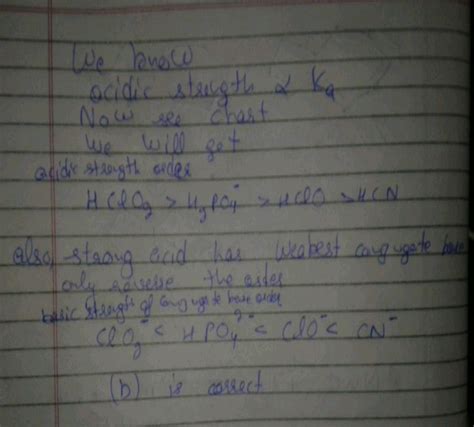 We know
acidic strength ∝ Ka
Now see chart
We will get
acidic strength order
HClO₂ > H₂PO₄⁻ > HClO > HCN
also, strong acid has weakest conjugate base
only reverse the order
basic strength of conjugate base order
ClO₂⁻ < HPO₄²⁻ < ClO⁻ < CN⁻
(b) is correct